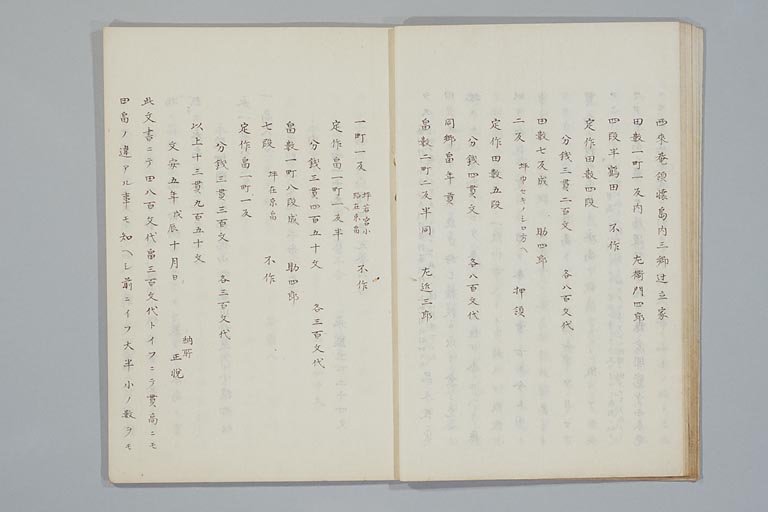 西來庵領懷島内三郷辻立家
田數一町一反内 左衞門四郎
四段半鶴田 不作
定作田數四段
分錢三貫二百文 各八百文代
田數七反成 助四郎
二反 坪中セキノシロ方ヘ 押領
定作田數五段
分錢四貫文 各八百文代
同郷畠年貢
畠數二町二反半同 左近三郎
一町一反 坪若宮小路在京畠 不作
定作畠一町一反半
分錢三貫四百五十文 各三百文代
畠數一町八段成 助四郎
七段 坪在京畠 不作
定作畠一町一反
分錢三貫三百文 各三百文代
以上十三貫九百五十文
文安五年戊辰十月日 納所 正悅
此文書ニテ田八百文代畠三百文代トイフニテ貫高ニモ
田畠ノ違アル事モ知ヘシ前ニイフ大半小ノ數ヲモ